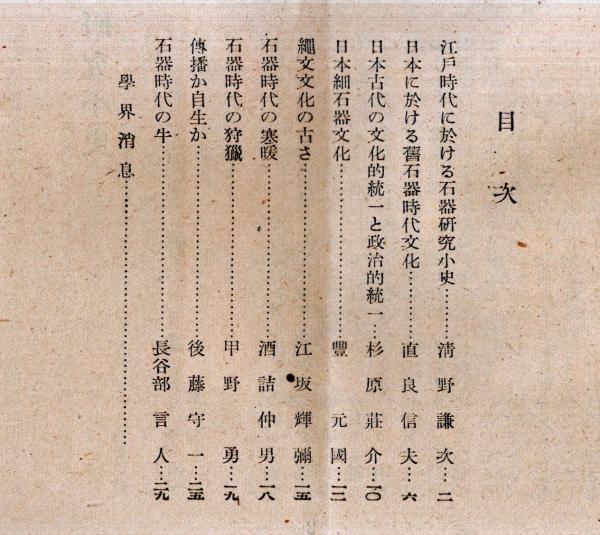 目次
江戸時代に於ける石器研究小史……清野謙次…二
日本に於ける舊石器時代文化……直良信夫…六
日本古代の文化的統一と政治的統一…杉原莊介…一〇
日本細石器文化……豐元國…一三
繩文文化の古さ……江坂輝彌…一五
石器時代の寒暖……酒詰仲男…一八
石器時代の狩獵……甲野勇…一九
傳播か自生か……後藤守一…二五
石器時代の牛……長谷部言人…二九
學界消息……